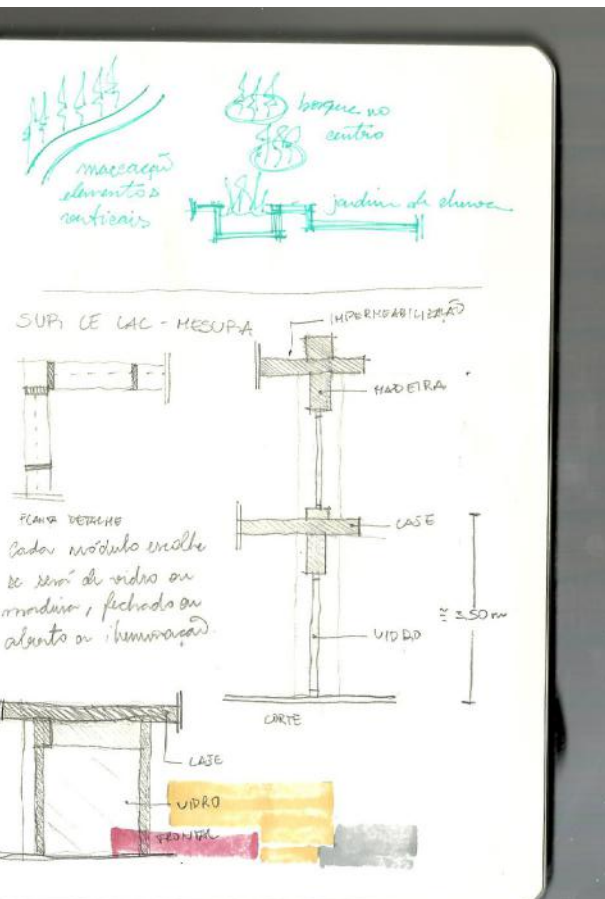 marcação
elementos
verticais
bosque no
centro
jardim de chuva
SUR LE LAC - MESURA
IMPERMEABILIZAÇÃO
MADEIRA
PLANTA DETALHE
Cada módulo escolhe
se será de vidro ou
madeira, fechado ou
aberto a iluminação.
LAJE
VIDRO
≅ 3.50 m
CORTE
LAJE
VIDRO
FRONTAL